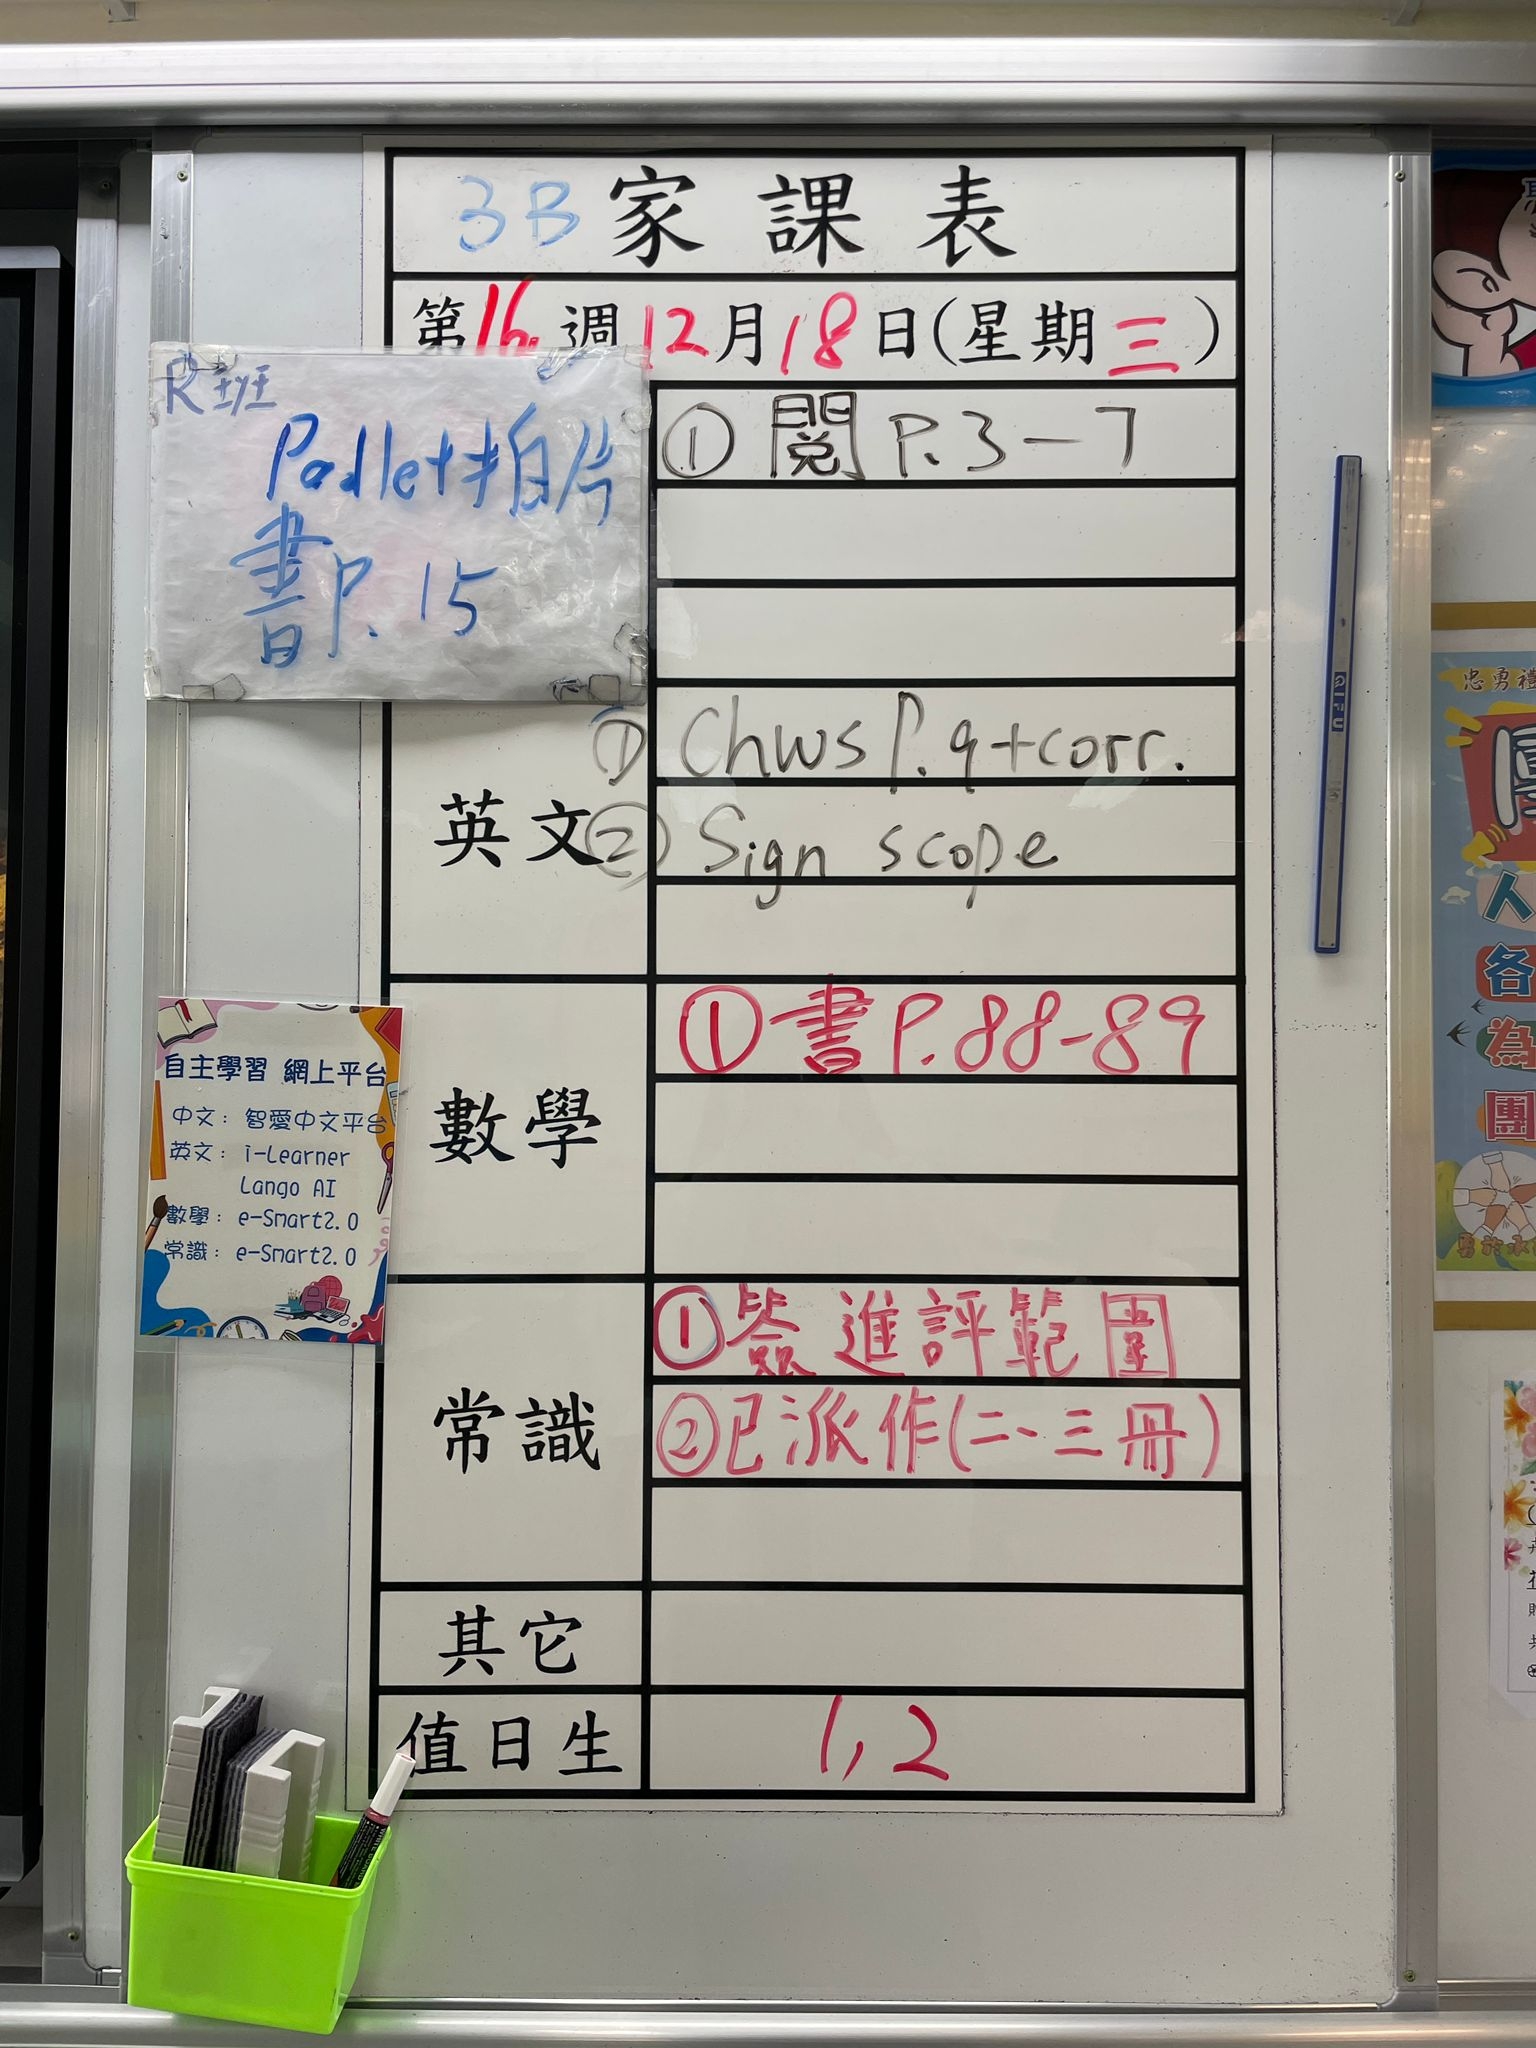 3B 家課表
第16週12月18日(星期三)
R班
Padlet拍片
書P.15
① 閱 P.3-7
英文
① Chws P.9+corr.
② Sign scope
數學
① 書 P.88-89
常識
① 簽進評範圍
② 已派作(二、三冊)
其它
值日生
1,2
自主學習 網上平台
中文：智愛中文平台
英文：i-Learner
Lango AI
數學：e-Smart2.0
常識：e-Smart2.0
忠勇禮
人
各
為
團